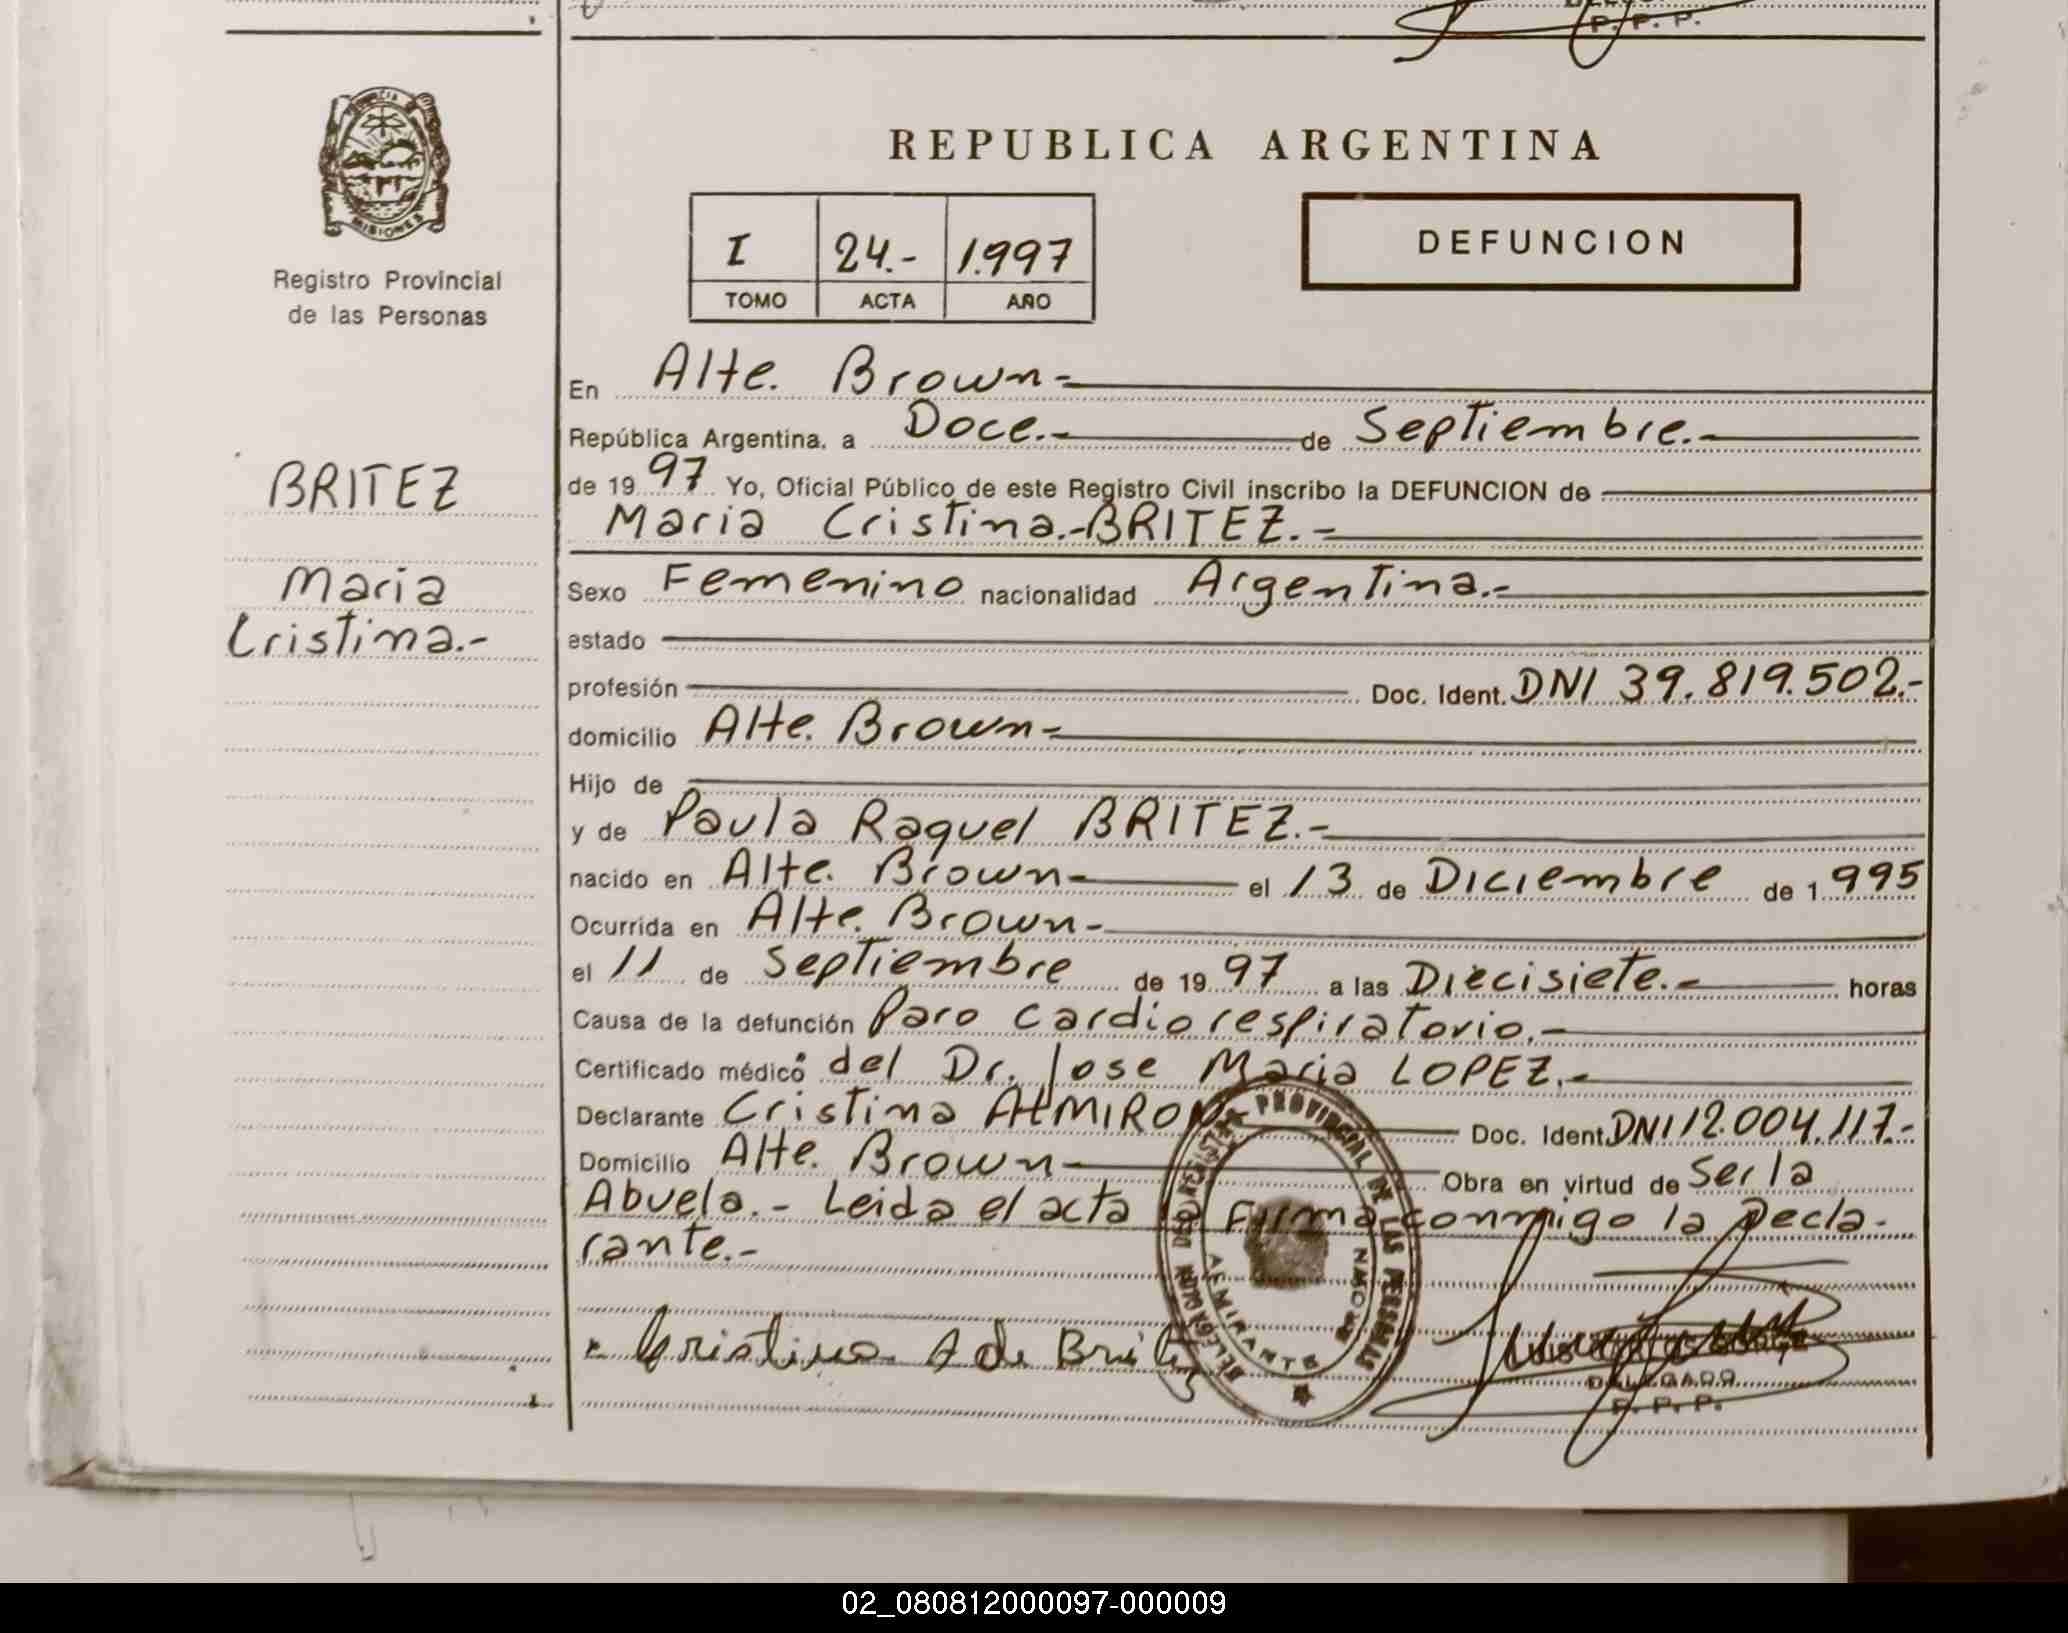 P. P. P.
PROVINCIA DE
MISIONES
Registro Provincial
de las Personas
REPUBLICA ARGENTINA
I 24.- 1.997
TOMO ACTA AÑO
DEFUNCION
BRITEZ
Maria
Cristina.-
En Alte. Brown-
República Argentina, a Doce.- de Septiembre.-
de 1997 Yo, Oficial Público de este Registro Civil inscribo la DEFUNCION de
Maria Cristina.-BRITEZ.-
Sexo Femenino nacionalidad Argentina.-
estado
profesión Doc. Ident. DNI 39.819.502.-
domicilio Alte. Brown-
Hijo de
y de Paula Raquel BRITEZ.-
nacido en Alte. Brown- el 13 de Diciembre de 1.995
Ocurrida en Alte. Brown-
el 11 de Septiembre de 1997 a las Diecisiete.- horas
Causa de la defunción Paro cardiorespiratorio.-
Certificado médico del Dr. Jose Maria LOPEZ.-
Declarante Cristina ALMIRON Doc. Ident. DNI 12.004.117.-
Domicilio Alte. Brown- Obra en virtud de Ser la
Abuela.- Leida el acta Firma conmigo la Decla-
rante.-
DELEGACION DEL REGISTRO PROVINCIAL DE LAS PERSONAS
ALMIRANTE BROWN
Cristina A de Britez
DELEGADO
P. P. P.
02_080812000097-000009